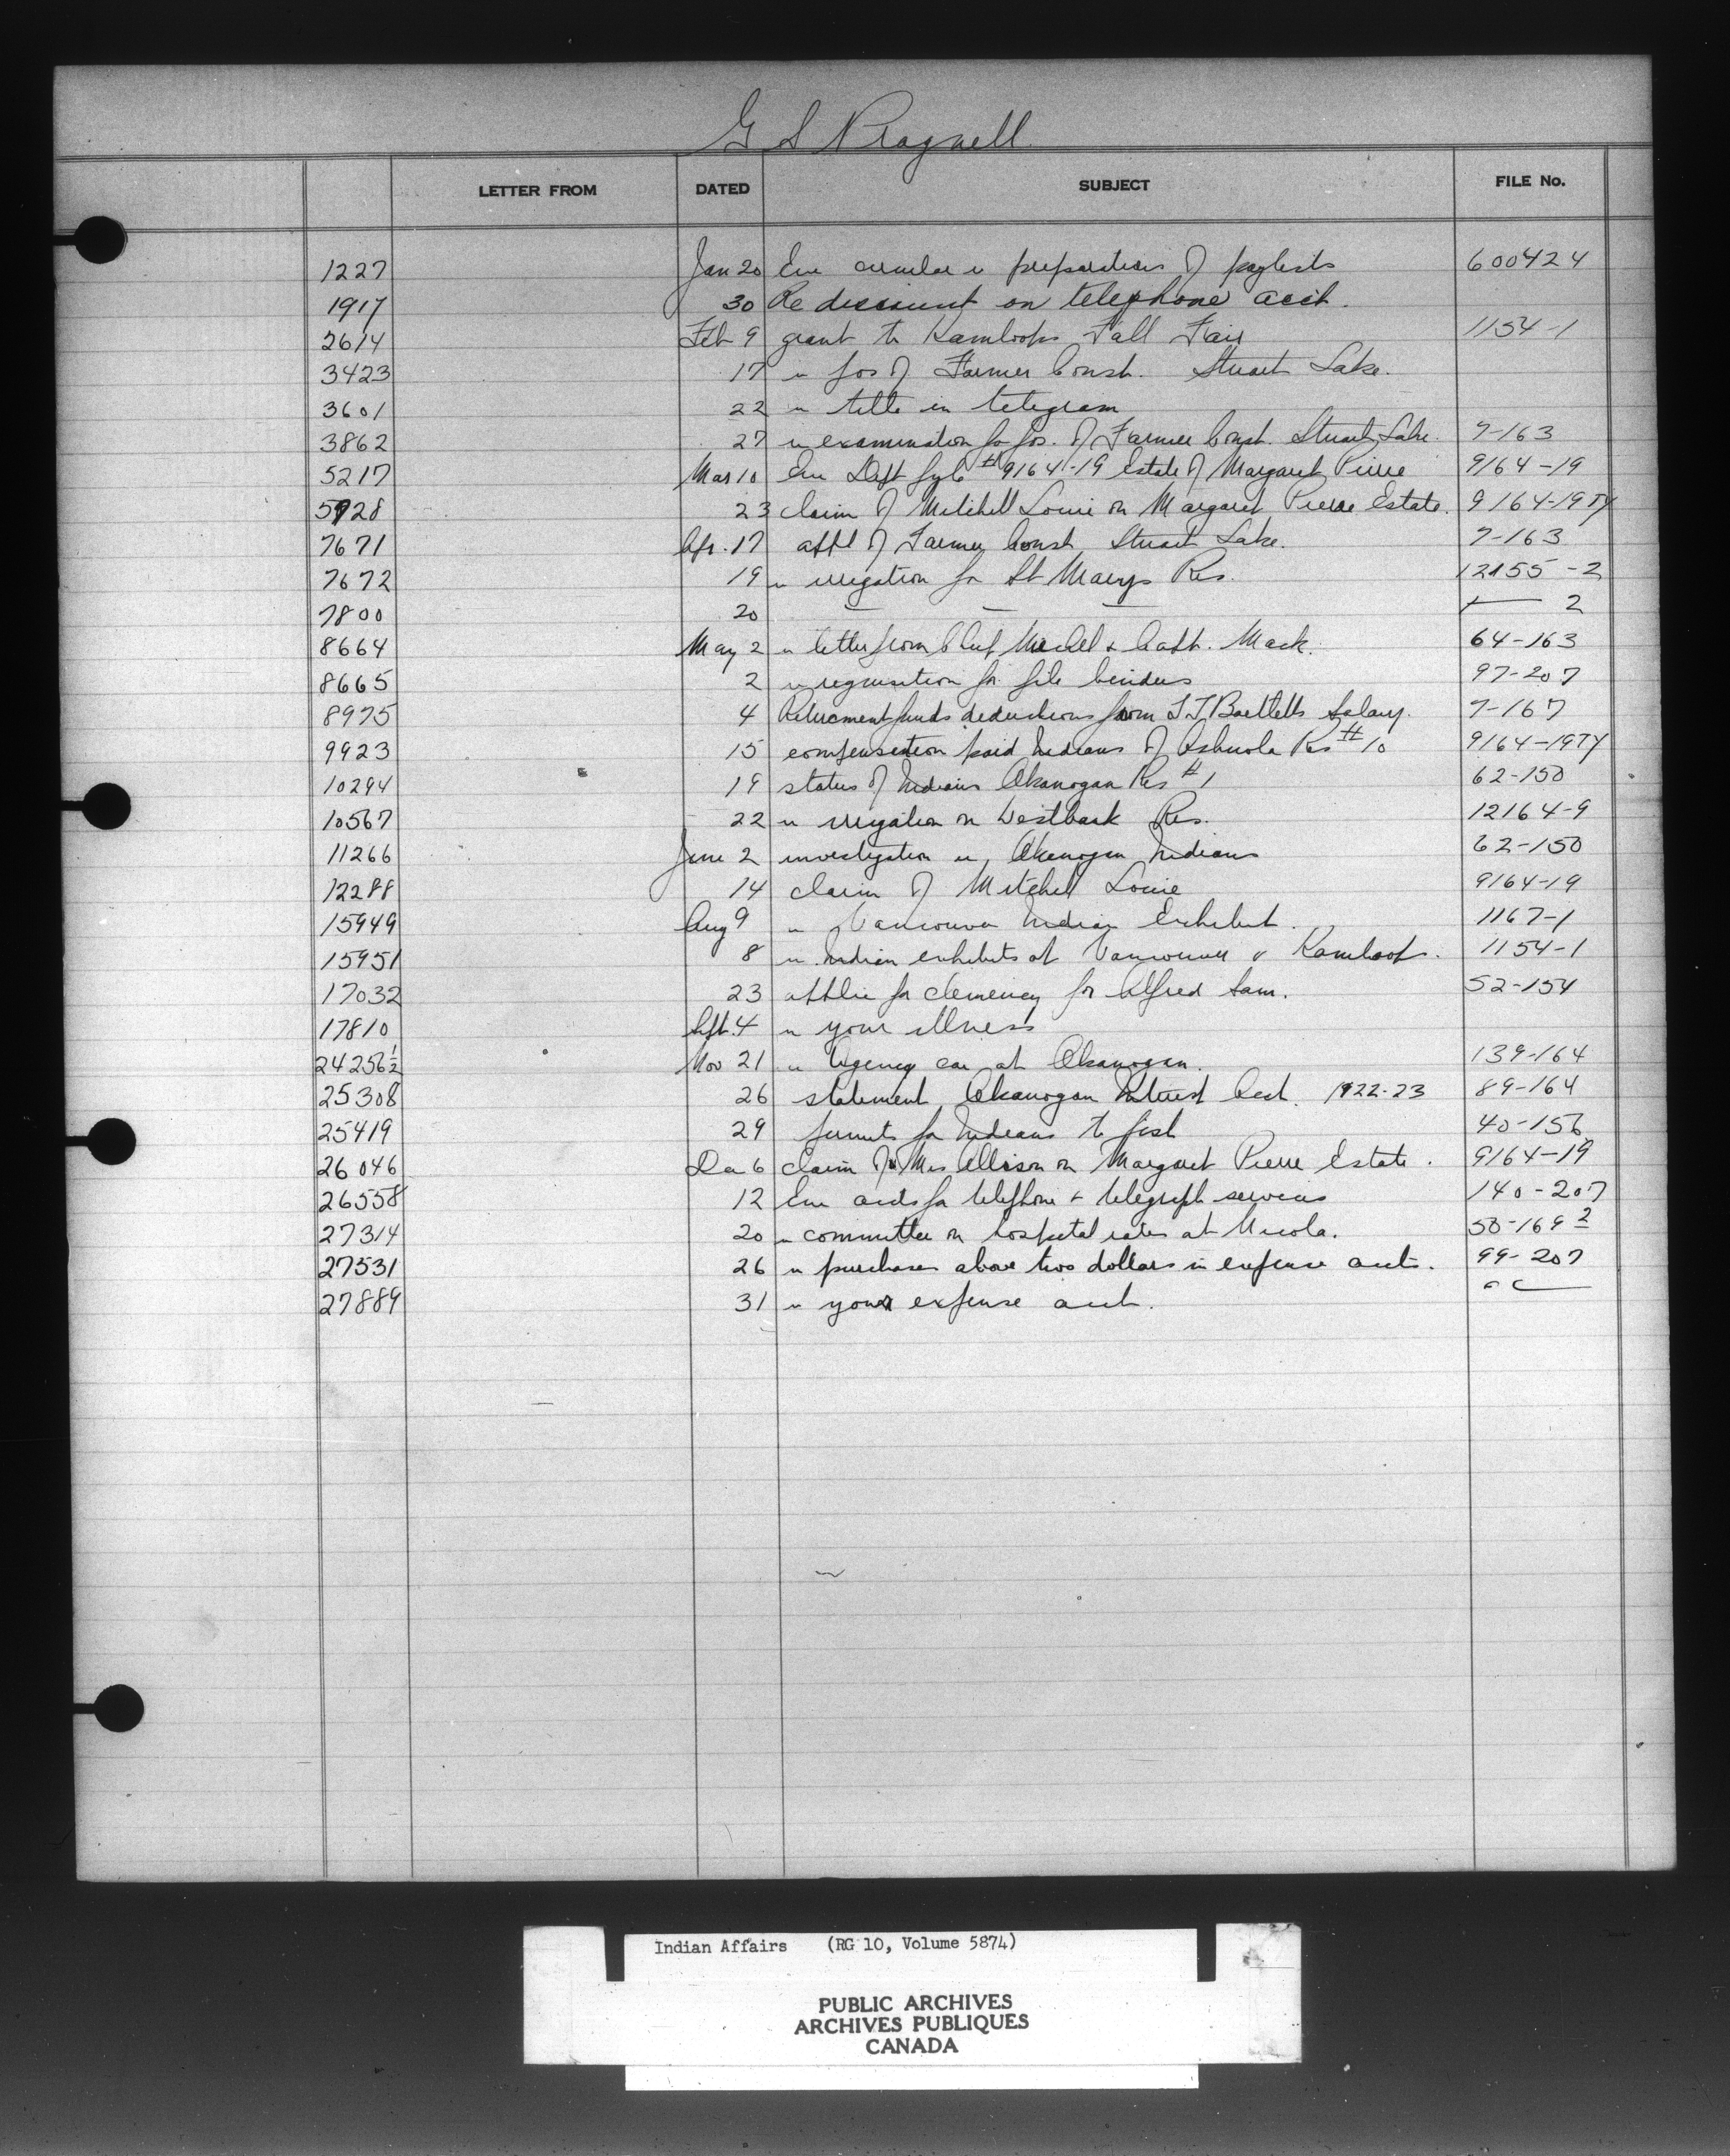 G S Pragnell
LETTER FROM DATED SUBJECT FILE No.
1227 Jan 20 Enc circular re preparation of paylists 600424
1917 30 Re discount on telephone acct.
2614 Feb 9 grant to Kamloops Fall Fair 1154-1
3423 17 re pos of Farmer Const. Stuart Lake.
3601 22 re in telegram
3862 27 re examination for pos. of Farmer Const. Stuart Lake. 7-163
5217 Mar 10 Enc Dept file #9164-19 Estate of Margaret Pierre 9164-19
5928 23 claim of Mitchell Louie on Margaret Pierre Estate. 9164-19TY
7671 Apr. 17 appt of Farmer Const Stuart Lake. 7-163
7672 19 re irrigation for St Marys Res. 12155-2
7800 20 — — — — 2
8664 May 2 re letter from Chief Michel & Capt. Mack. 64-163
8665 2 re requisition for file binders 97-207
8975 4 Retirement funds deductions from Bartletts Salary. 7-167
9923 15 compensation paid Indians of Ashnola Res #10 9164-19TY
10294 19 status of Indians Okanogan Res #1 62-150
10567 22 re irrigation on Westbank Res. 12164-9
11266 June 2 investigation re Okanogan Indians 62-150
12288 14 claim of Mitchel Louie 9164-19
15949 Aug 9 re Vancouver Indian Exhibit. 1167-1
15951 8 re Indian exhibits at Vancouver & Kamloops. 1154-1
17032 23 applic for clemency for Alfred Sam. 52-154
17810 Sept. 4 re your illness
24256½ Nov 21 re Agency car at Okanogan. 139-164
25308 26 statement Okanogan Interest Acct. 1922-23 89-164
25419 29 permits for Indians to fish 40-156
26046 Dec 6 claim of Mrs Allison on Margaret Pierre Estate. 9164-19
26558 12 Enc accts for telephone & telegraph services 140-207
27314 20 re committee on hospital rates at Nicola. 50-169 2
27531 26 re purchases above two dollars in expense accts. 99-207
27889 31 re your expense acct.
Indian Affairs (RG 10, Volume 5874)
PUBLIC ARCHIVES
ARCHIVES PUBLIQUES
CANADA